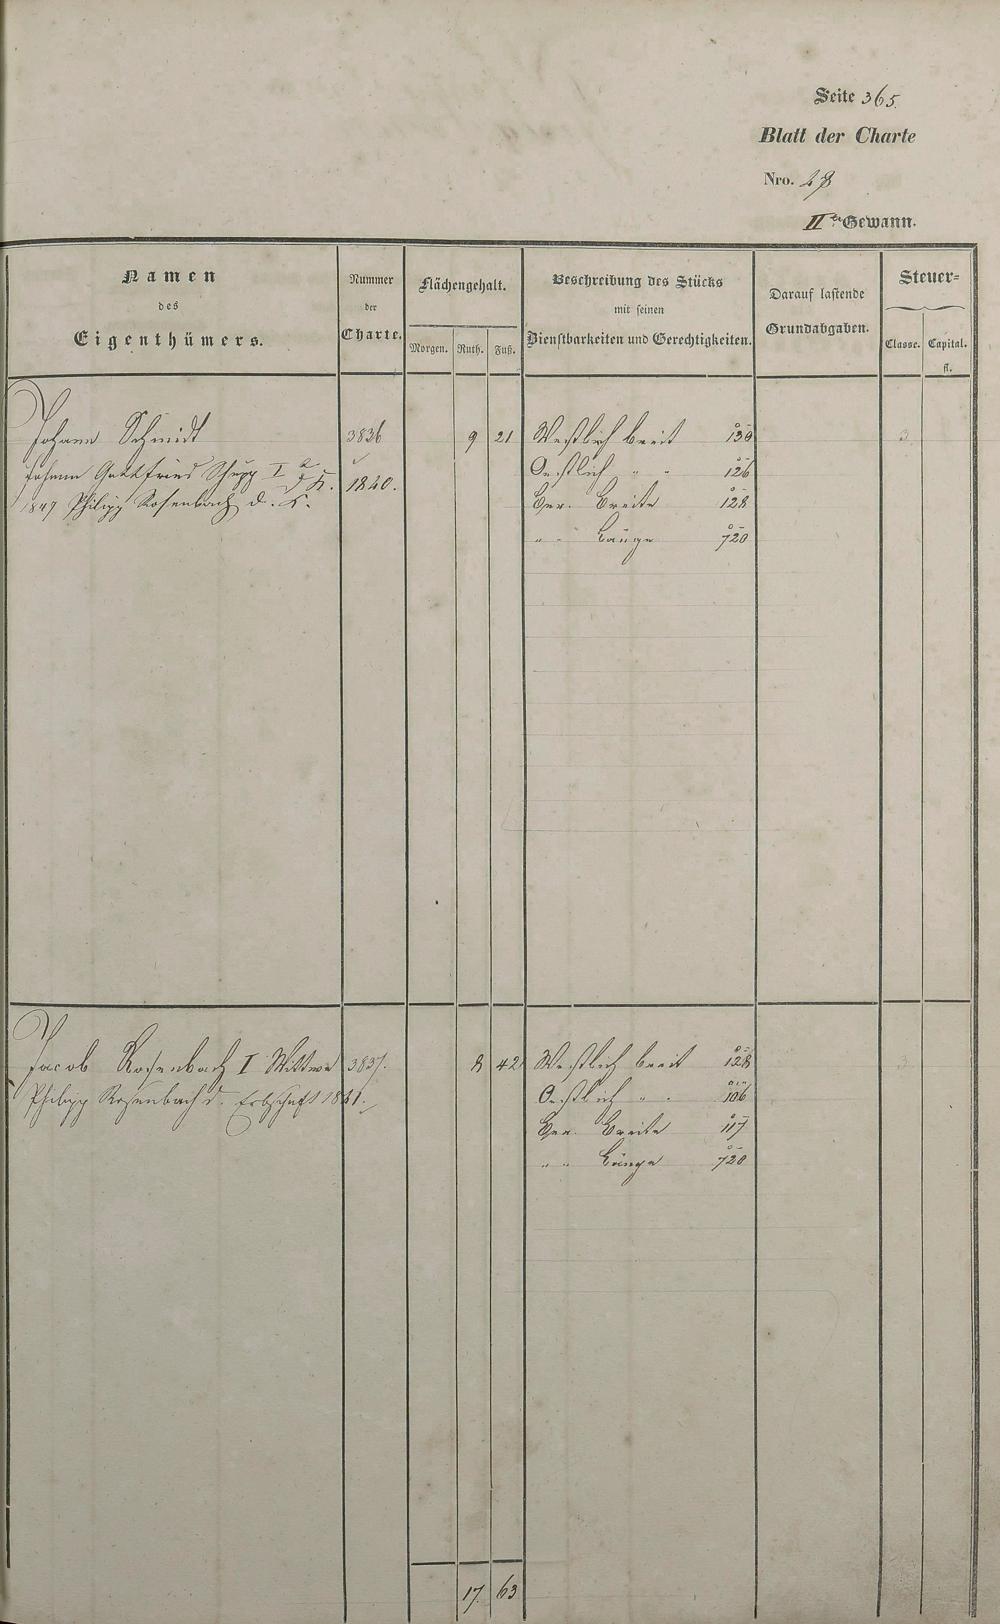 Seite 365.
Blatt der Charte
Nro. 28
II te Gewann.
Namen
des
Eigenthümers.
Nummer
der
Charte.
Flächengehalt.
Morgen. Ruth. Fuß.
Beschreibung des Stücks
mit seinen
Dienstbarkeiten und Gerechtigkeiten.
Darauf lastende
Grundabgaben.
Steuer=
Classe. Capital.
fl.
Johann Schmidt 3836 9 21 Westlich breit 130 3
Johann Gottfried Schupp I d. K. 1840. Oestlich " " 126
1847 Philipp Rosenbach d. K. Ger. Breite 128
" " Länge 720
Jacob Rosenbach I Wittwe 3837. 8 42 Westlich breit 128 3
Philipp Rosenbach d. Erbschaft 1841. Oestlich " " 106
Ger. Breite 117
" " Länge 720
17 63